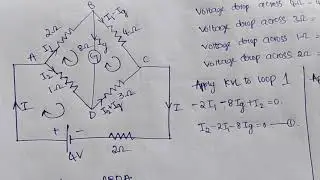 B
2Ω
I₁
I₁-Ig
4Ω
8Ω
Ig
G
A
C
I₂
1Ω
3Ω
I₂+Ig
D
I
I
+ -
4V
2Ω
Voltage drop across 4Ω =
Voltage drop across 3Ω =
Voltage drop across 1Ω =
Voltage drop across 2Ω =
Apply KVL to loop 1
-2I₁-8Ig+I₂=0.
I₂-2I₁-8Ig=0 — ①.